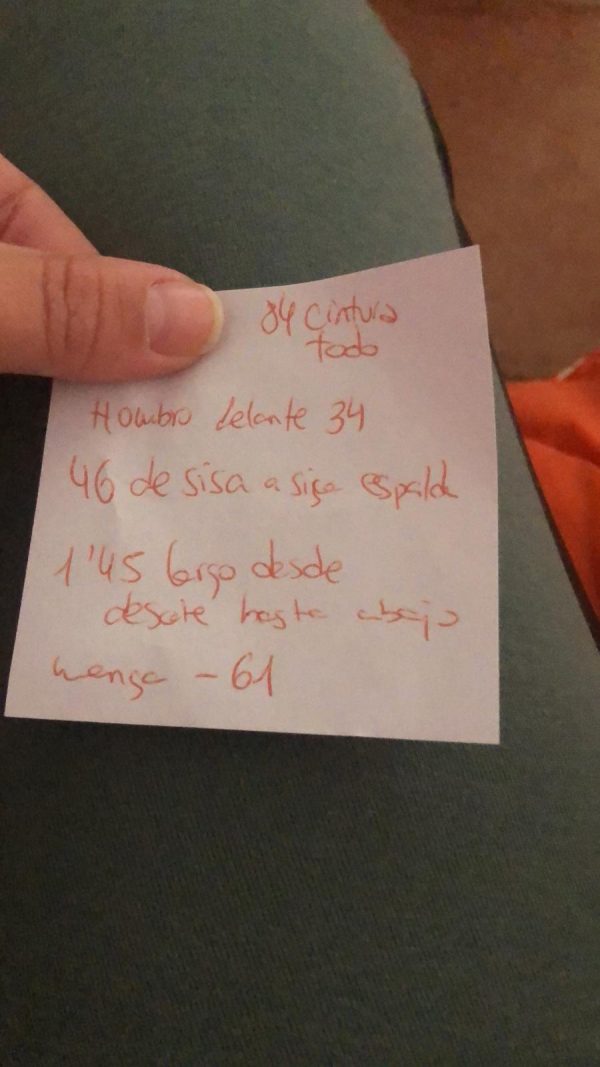 84 Cintura
todo
Hombro delante 34
46 de sisa a sisa espalda
1'45 largo desde
descote hasta abajo
manga - 61